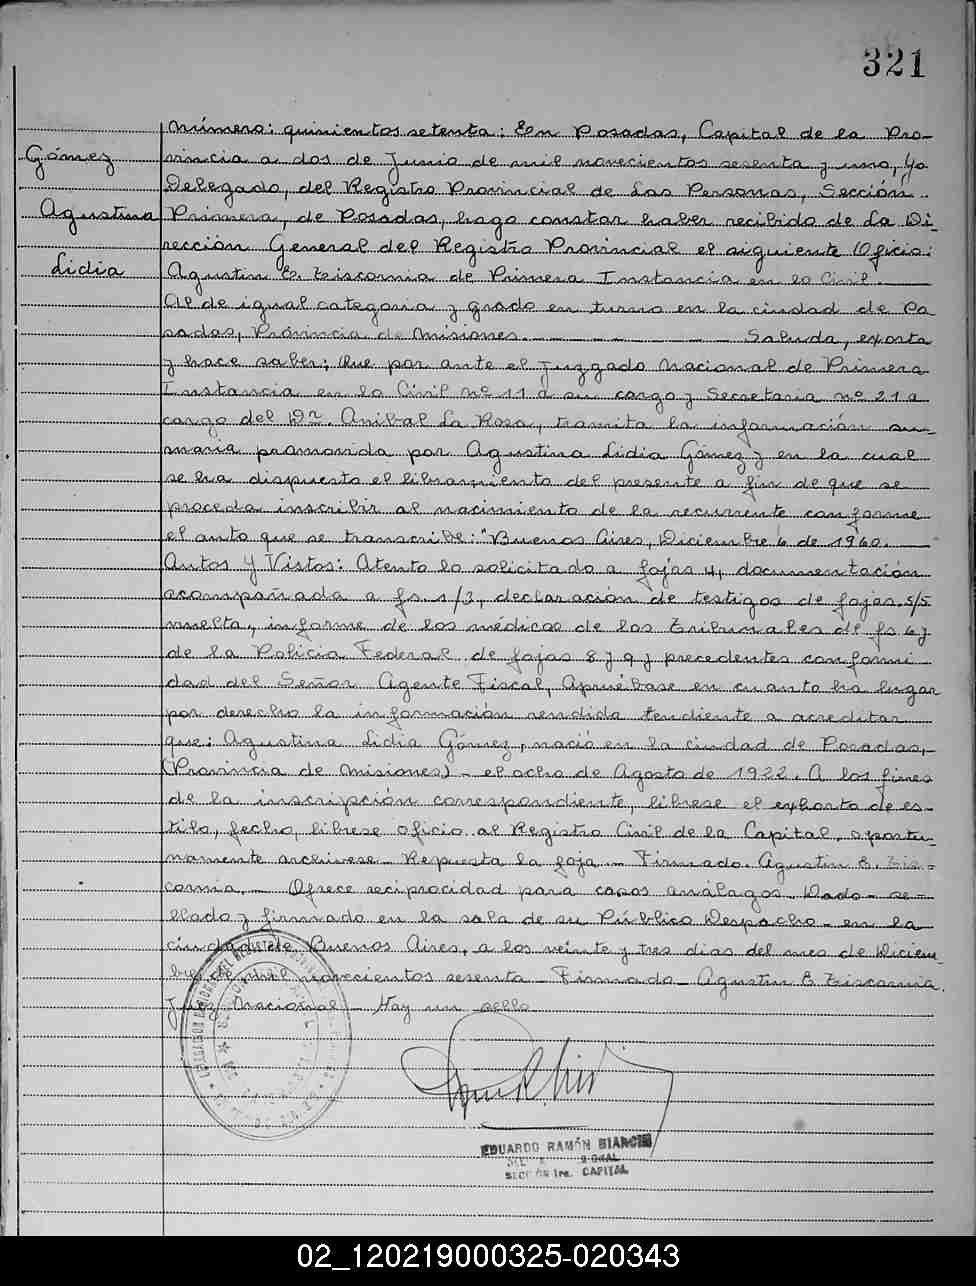 321
Número: quinientos setenta: En Posadas, Capital de la Pro-
Gómez
vincia a dos de Junio de mil novecientos sesenta y uno, Yo
Delegado, del Registro Provincial de Las Personas, Sección
Agustina
Primera, de Posadas, hago constar haber recibido de La Di
rección General del Registro Provincial el siguiente Oficio:
Lidia
Agustin E. Ziscornia de Primera Instancia en lo Civil.
Al de igual categoria y grado en turno en la ciudad de Po
sadas, Provincia de Misiones. Saluda, exorta
y hace saber; Que por ante el Juzgado Nacional de Primera
Instancia en lo Civil Nº 11 a su cargo y Secretaria nº 21 a
cargo del Dr. Anibal La Rosa, tramita la información su-
maria promovida por Agustina Lidia Gómez y en la cual
se ha dispuesto el libramiento del presente a fin de que se
proceda inscribir al nacimiento de la recurrente conforme
el auto que se transcribe: "Buenos Aires, Diciembre 6 de 1960.
Autos y Vistos: Atento lo solicitado a fojas 4, documentación
acompañada a fs. 1/3, declaración de testigos de fojas, 5/5
vuelta, informe de los médicos de los Tribunales de fs 6 y
de la Policia Federal de fojas 8 y 9 y precedentes conformi
dad del Señor Agente Fiscal, Apruébase en cuanto ha lugar
por derecho la información rendida tendiente a acreditar
que: Agustina Lidia Gómez, nació en la ciudad de Posadas,-
(Provincia de Misiones) - el ocho de Agosto de 1922. A los fines
de la inscripción correspondiente, librese el exhorto de es-
tilo, fecho, librese oficio al Registro Civil de la Capital, oportu-
namente archivese - Repuesta la foja - Firmado. Agustin E. Zis-
cornia. - Ofrece reciprocidad para casos análagos. Dado - se-
llado y firmado en la sala de su Público Despacho - en la
ciudad de Buenos Aires, a los veinte y tres dias del mes de Diciem
bre de mil novecientos sesenta - Firmado - Agustin E Ziscornia.
Juez Nacional - Hay un sello
EDUARDO RAMÓN BIANCHI
SECCIÓN 1ra. CAPITAL
02_120219000325-020343